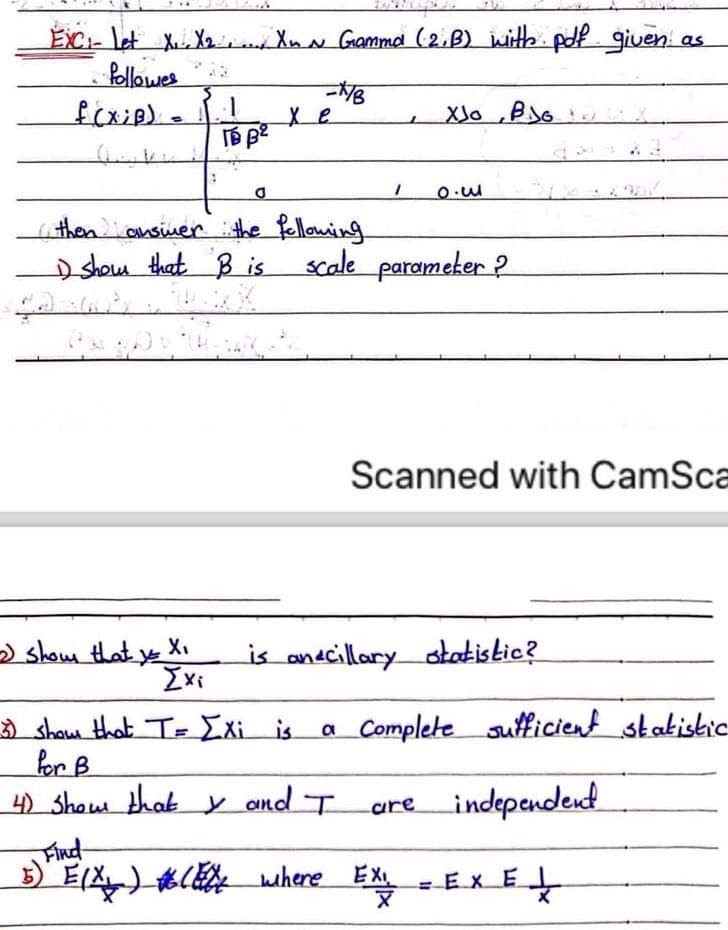 EXC:- let X₁, X₂, ..., Xn ~ Gamma (2,β) with pdf given as
followes
f(x;β) = { 1/(Γ6 β²) x e^(-x/β) , x>0 , β>0
0 , o.w
then answer the following
1) show that β is scale parameter?
Scanned with CamSca
2) show that y= X₁/ΣXi is ancillary statistic?
3) show that T= ΣXi is a Complete sufficient statistic
for β
4) show that y and T are independent
Find
5) E(X₁/X̄) where E X₁/X̄ = E X E 1/X